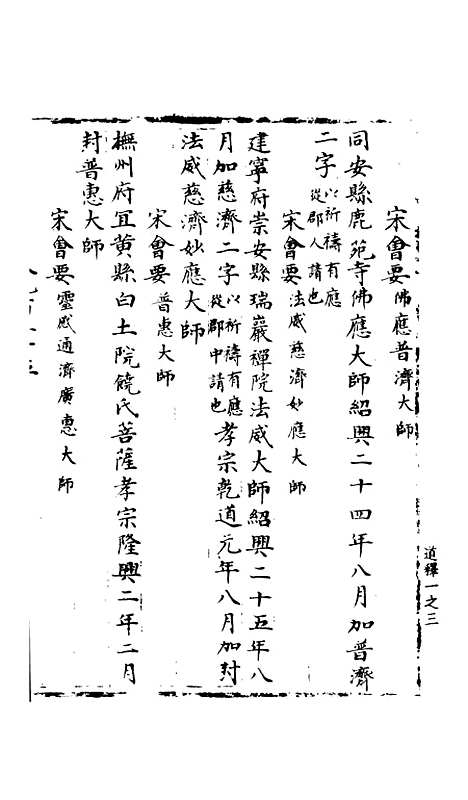 道釋一之三
宋會要佛應普濟大師
同安縣鹿苑寺佛應大師紹興二十四年八月加普濟
二字以祈禱有應從郡人請也
宋會要法威慈濟妙應大師
建寧府崇安縣瑞巖禪院法威大師紹興二十五年八
月加慈濟二字以祈禱有應從郡中請也孝宗乾道元年八月加封
法威慈濟妙應大師
宋會要普惠大師
撫州府宜黃縣白土院饒氏菩薩孝宗隆興二年二月
封普惠大師
宋會要靈感通濟廣惠大師